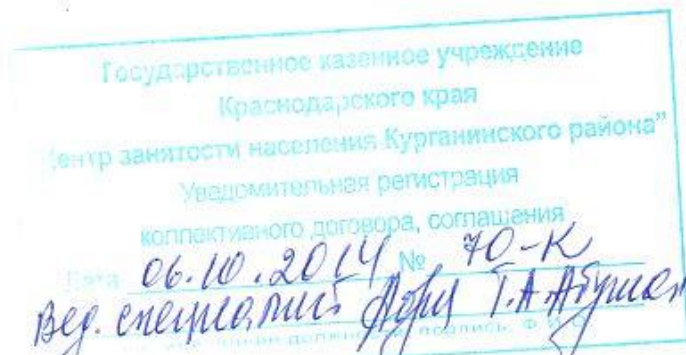 Государственное казенное учреждение
Краснодарского края
Центр занятости населения Курганинского района"
Уведомительная регистрация
коллективного договора, соглашения
Дата 06.10.2014 № 70-К
Вед. специалист Т.А.
должность подпись Ф.И.О.